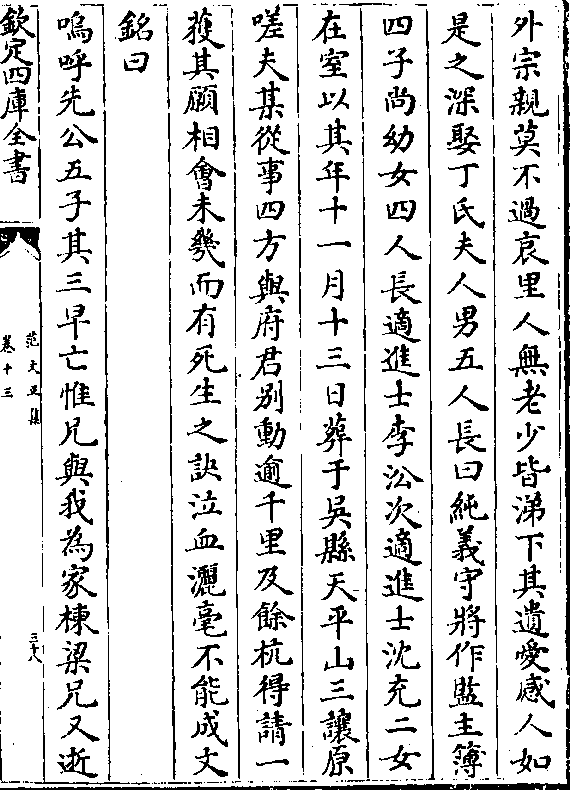 外宗親莫不過哀里人無老少皆涕下其遺愛感人如
是之深娶丁氏夫人男五人長曰純義守將作監主簿
四子尚幼女四人長適進士李㳂次適進士沈充二女
在室以其年十一月十三日葬于吳縣天平山三讓原
嗟夫某從事四方與府君别動逾千里及餘杭得請一
獲其願相會未幾而有死生之訣泣血灑毫不能成文
銘曰
嗚呼先公五子其三早亡惟兄與我為家棟梁兄又逝
欽定四庫全書
范文正集
卷十三
三十八